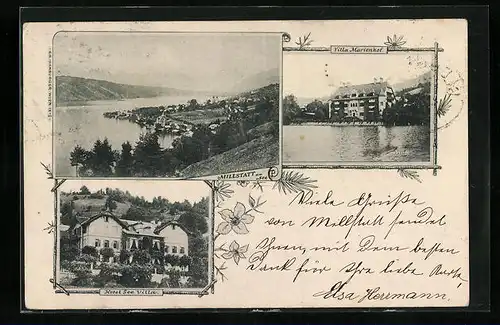 Villa Marienhof.
MILLSTATT am See
Hotel See Villa.
Viele Grüße
von Millstatt sendet
Ihnen, mit dem besten
Dank für Ihre liebe Karte
Elsa Herrmann.